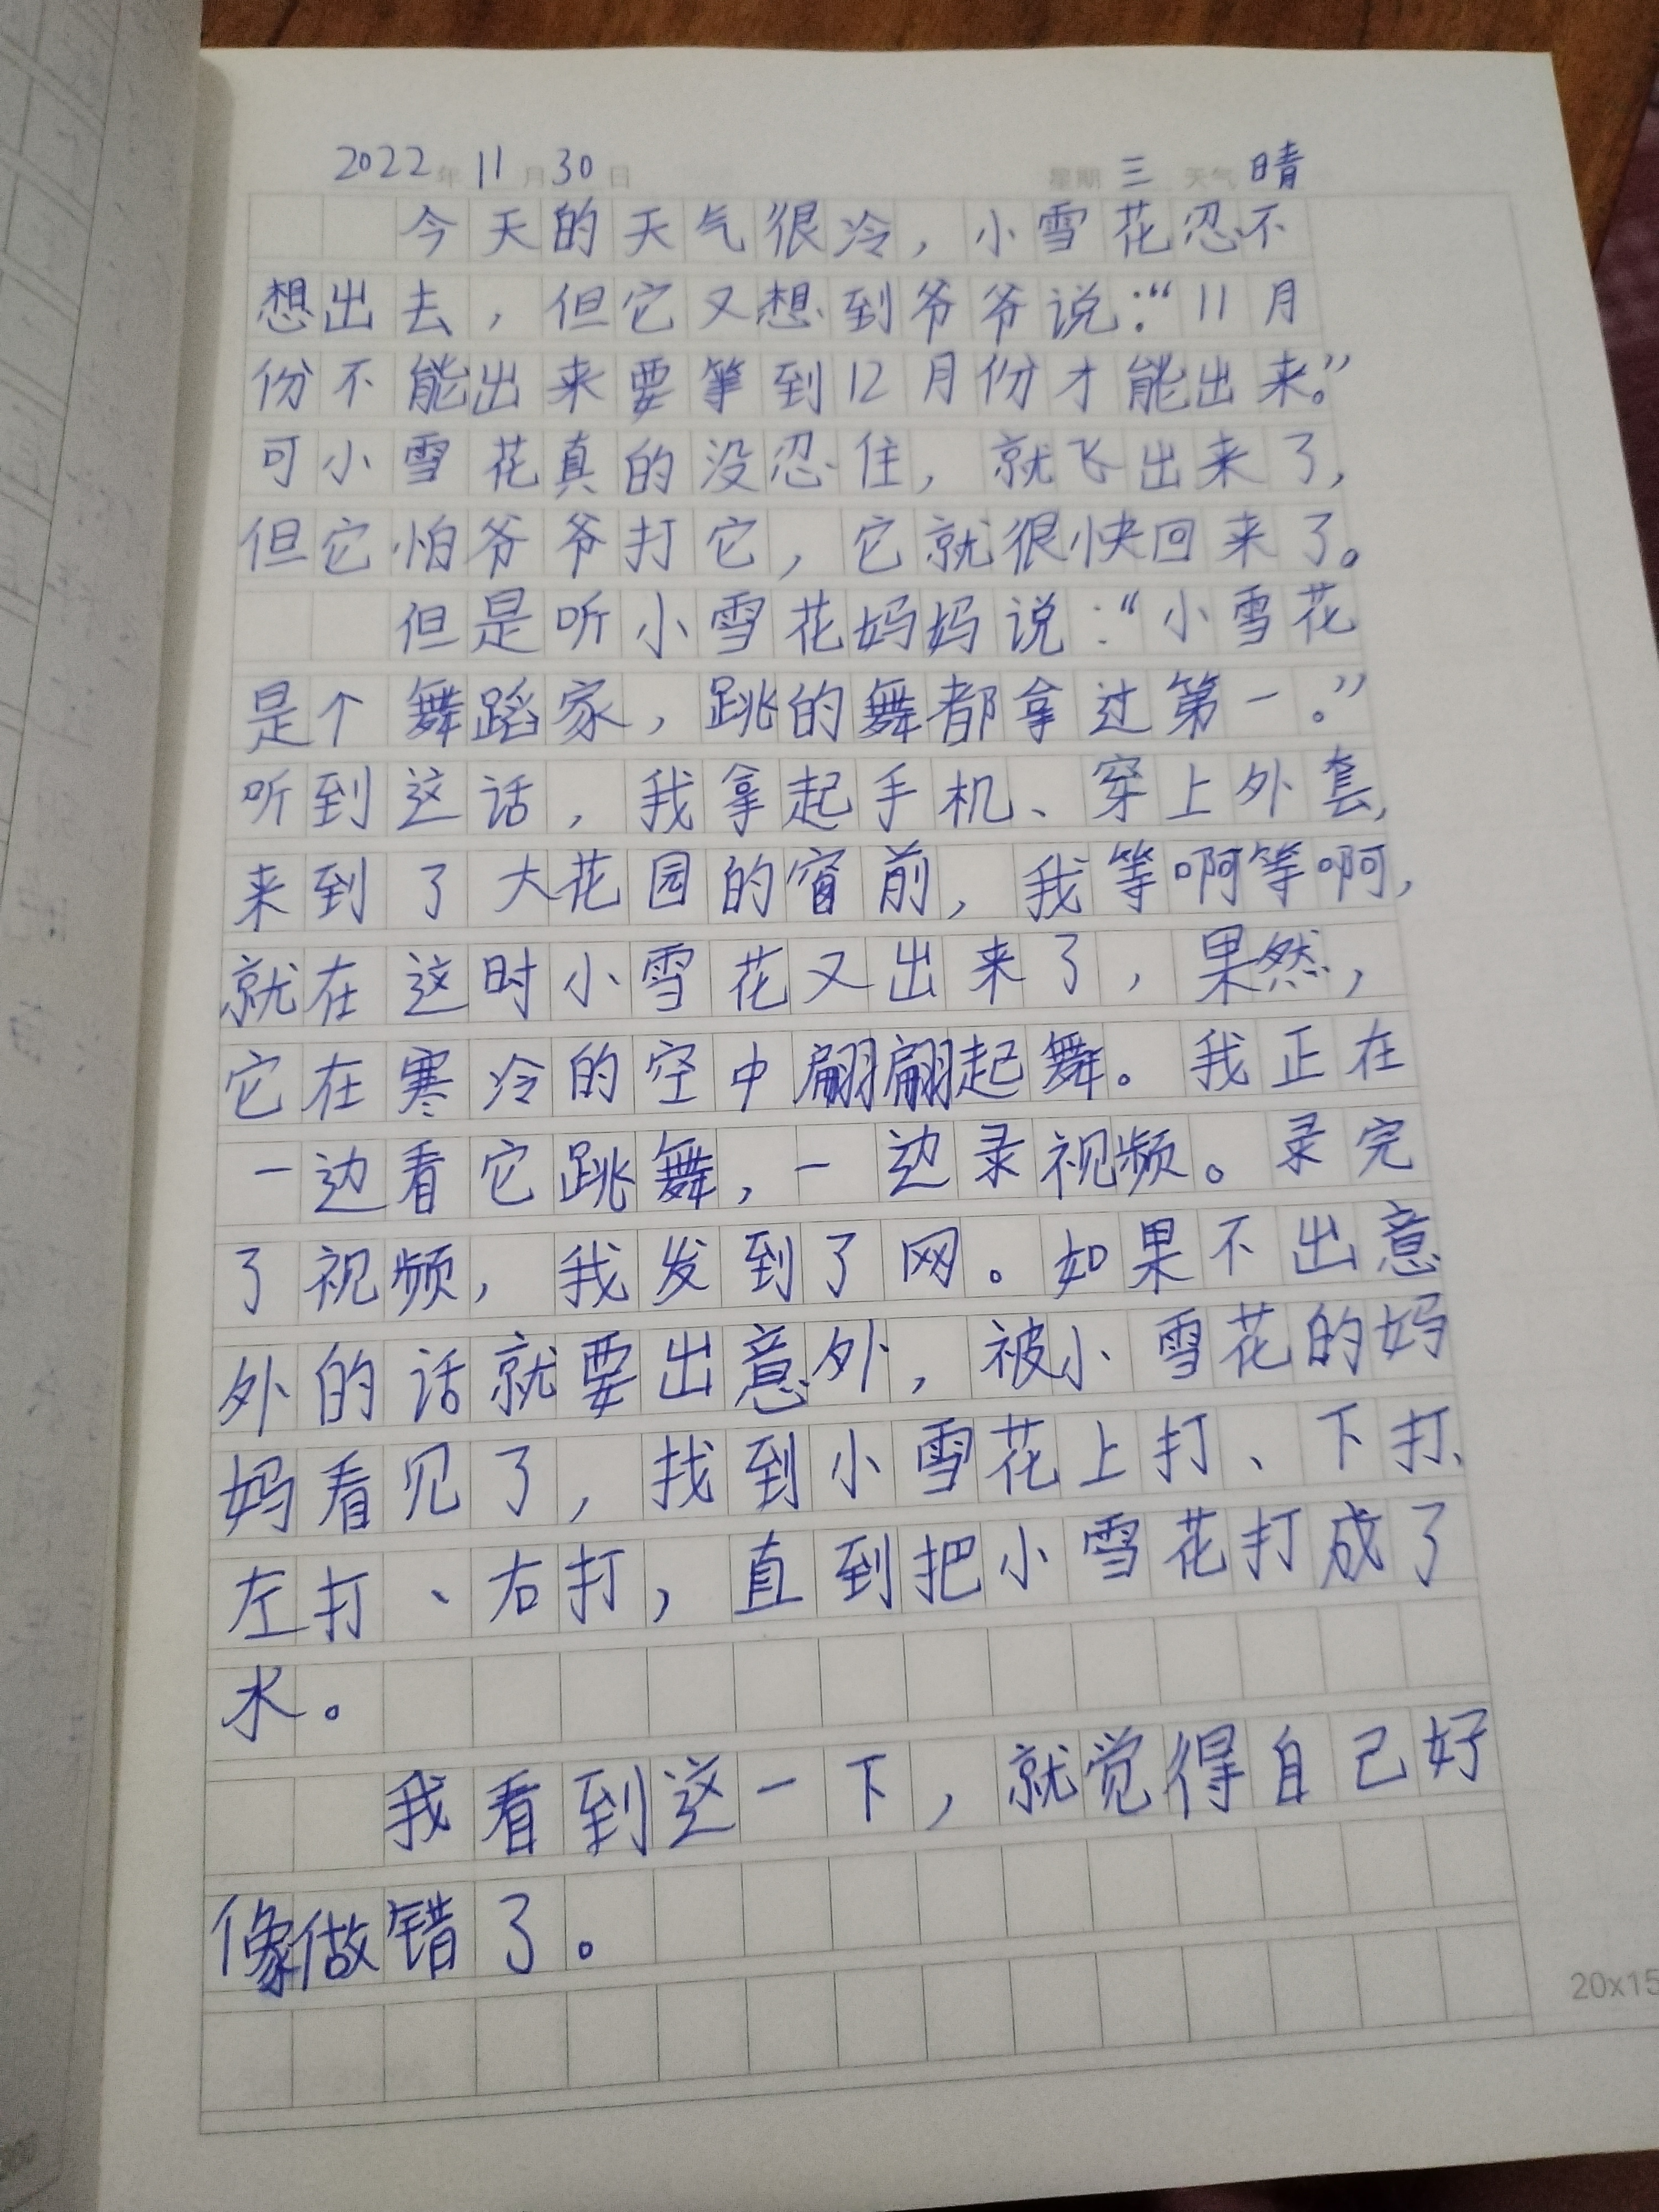 2022年11月30日 星期三 天气晴
今天的天气很冷，小雪花忍不
想出去，但它又想到爷爷说：“11月
份不能出来要等到12月份才能出来。”
可小雪花真的没忍住，就飞出来了，
但它怕爷爷打它，它就很快回来了。
但是听小雪花妈妈说：“小雪花
是个舞蹈家，跳的舞都拿过第一。”
听到这话，我拿起手机、穿上外套，
来到了大花园的窗前，我等啊等啊，
就在这时小雪花又出来了，果然，
它在寒冷的空中翩翩起舞。我正在
一边看它跳舞，一边录视频。录完
了视频，我发到了网。如果不出意
外的话就要出意外，被小雪花的妈
妈看见了，找到小雪花上打、下打、
左打、右打，直到把小雪花打成了
水。
我看到这一下，就觉得自己好
像做错了。
20x15